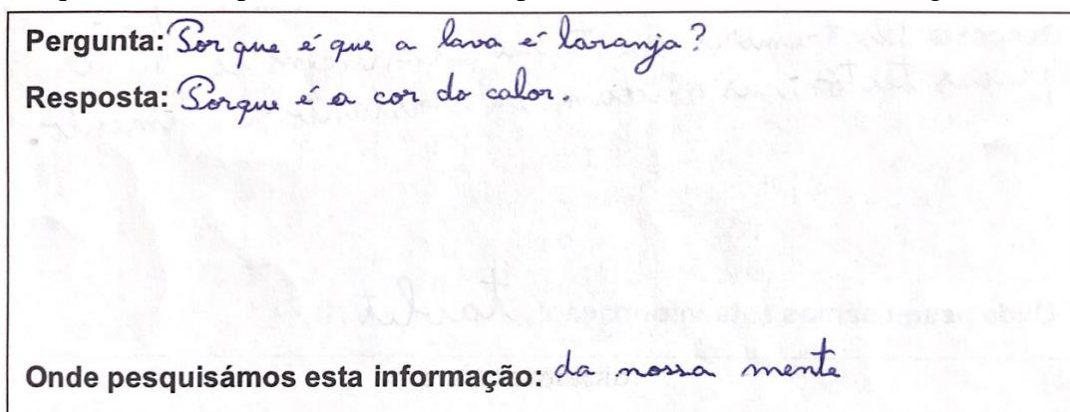 Pergunta: Por que é que a lava é laranja?
Resposta: Porque é a cor do calor.
Onde pesquisámos esta informação: da nossa mente